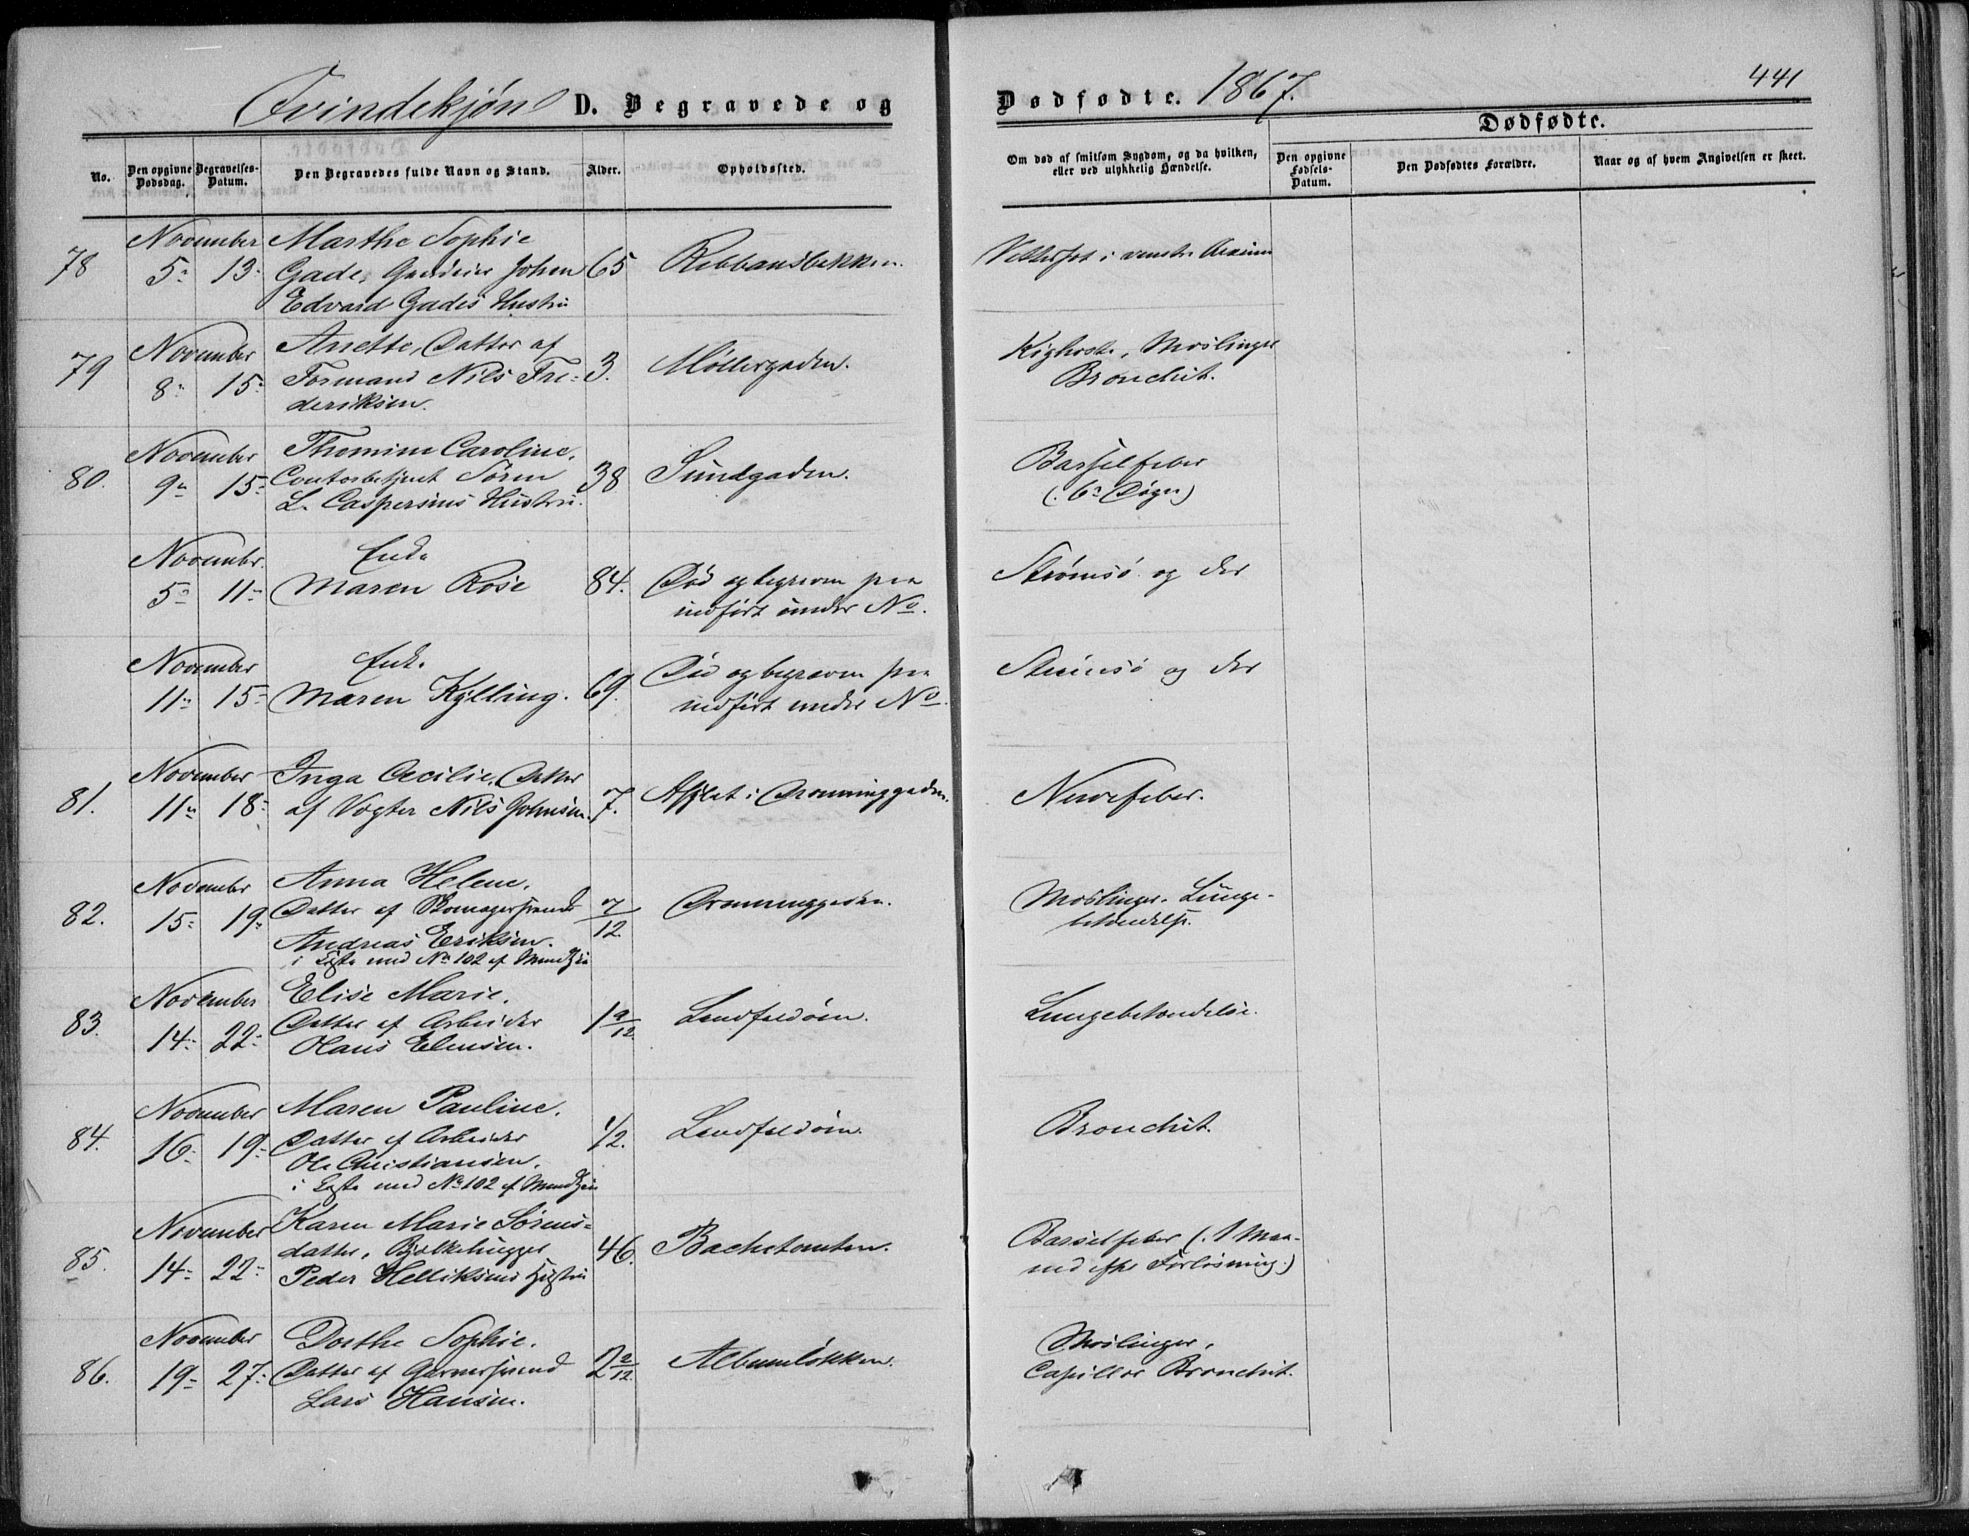 Qvindekjøn D. Begravede og Dødfødte. 1867. 441
Dødfødte.
No.
Den opgivne Dødsdag.
Begravelses-Datum.
Den Begravedes fulde Navn og Stand.
Alder.
Opholdssted.
Om død af smitsom Sygdom, og da hvilken, eller ved ulykkelig Hændelse.
Den opgivne Fødsels-Datum.
Den Dødfødtes Forældre.
Naar og af hvem Angivelsen er skeet.
November Marthe Sophie
78 5 13 Gade, Johan 65
Edvard Gades Hustru
November Anette, Datter af Kighoste, Meslinger
79 8 15 Formand Nils Fre- 3. Møllergaden. Bronchit.
deriksen.
November Thomine Caroline, Barselfeber
80. 9 15 Contorbetjent Søren 38 Sundgaden. (: 6 Døgn)
L. Caspersens Hustru.
November Enke Strømsø og der
5 11 Maren Rose 84. Død og begraven paa
indført under No.
November Enke Strømsø og der
11 15 Maren Kylling. 69. Død og begraven paa
indført under No.
November Inga Cecilie, Datter
81. 11 18 af Vogter Nils Johnsen. 7. i Dronninggaden. Nervefeber.
November Anna Helene, Meslinger. Lunge-
82. 15 19 Datter af 7/12. Dronninggaden. betændelse.
Andreas Eriksen.
i Kiste med No 102 af Mandkjøn
November Elise Marie,
83. 14 22 Datter af Arbeider 1 9/12 Landfaldøen. Lungebetændelse.
Hans Elensen.
November Maren Pauline,
84. 16 19 Datter af Arbeider 1/2. Landfaldøen. Bronchit.
Ole Christiansen,
i Kiste med No 102 af Mandkjøn
November Karen Marie Sørens- Barselfeber (: 1 Maa-
85. 14 22 datter, Bjelkehugger 46. Bachetomten. ned efter Forløsning.)
Peder Helliksens Hustru
November Dorthe Sophie. Meslinger,
86. 19 27 Datter af Garversvend 2 2/12 Albumløkken. Capillær Bronchit.
Lars Hansen.